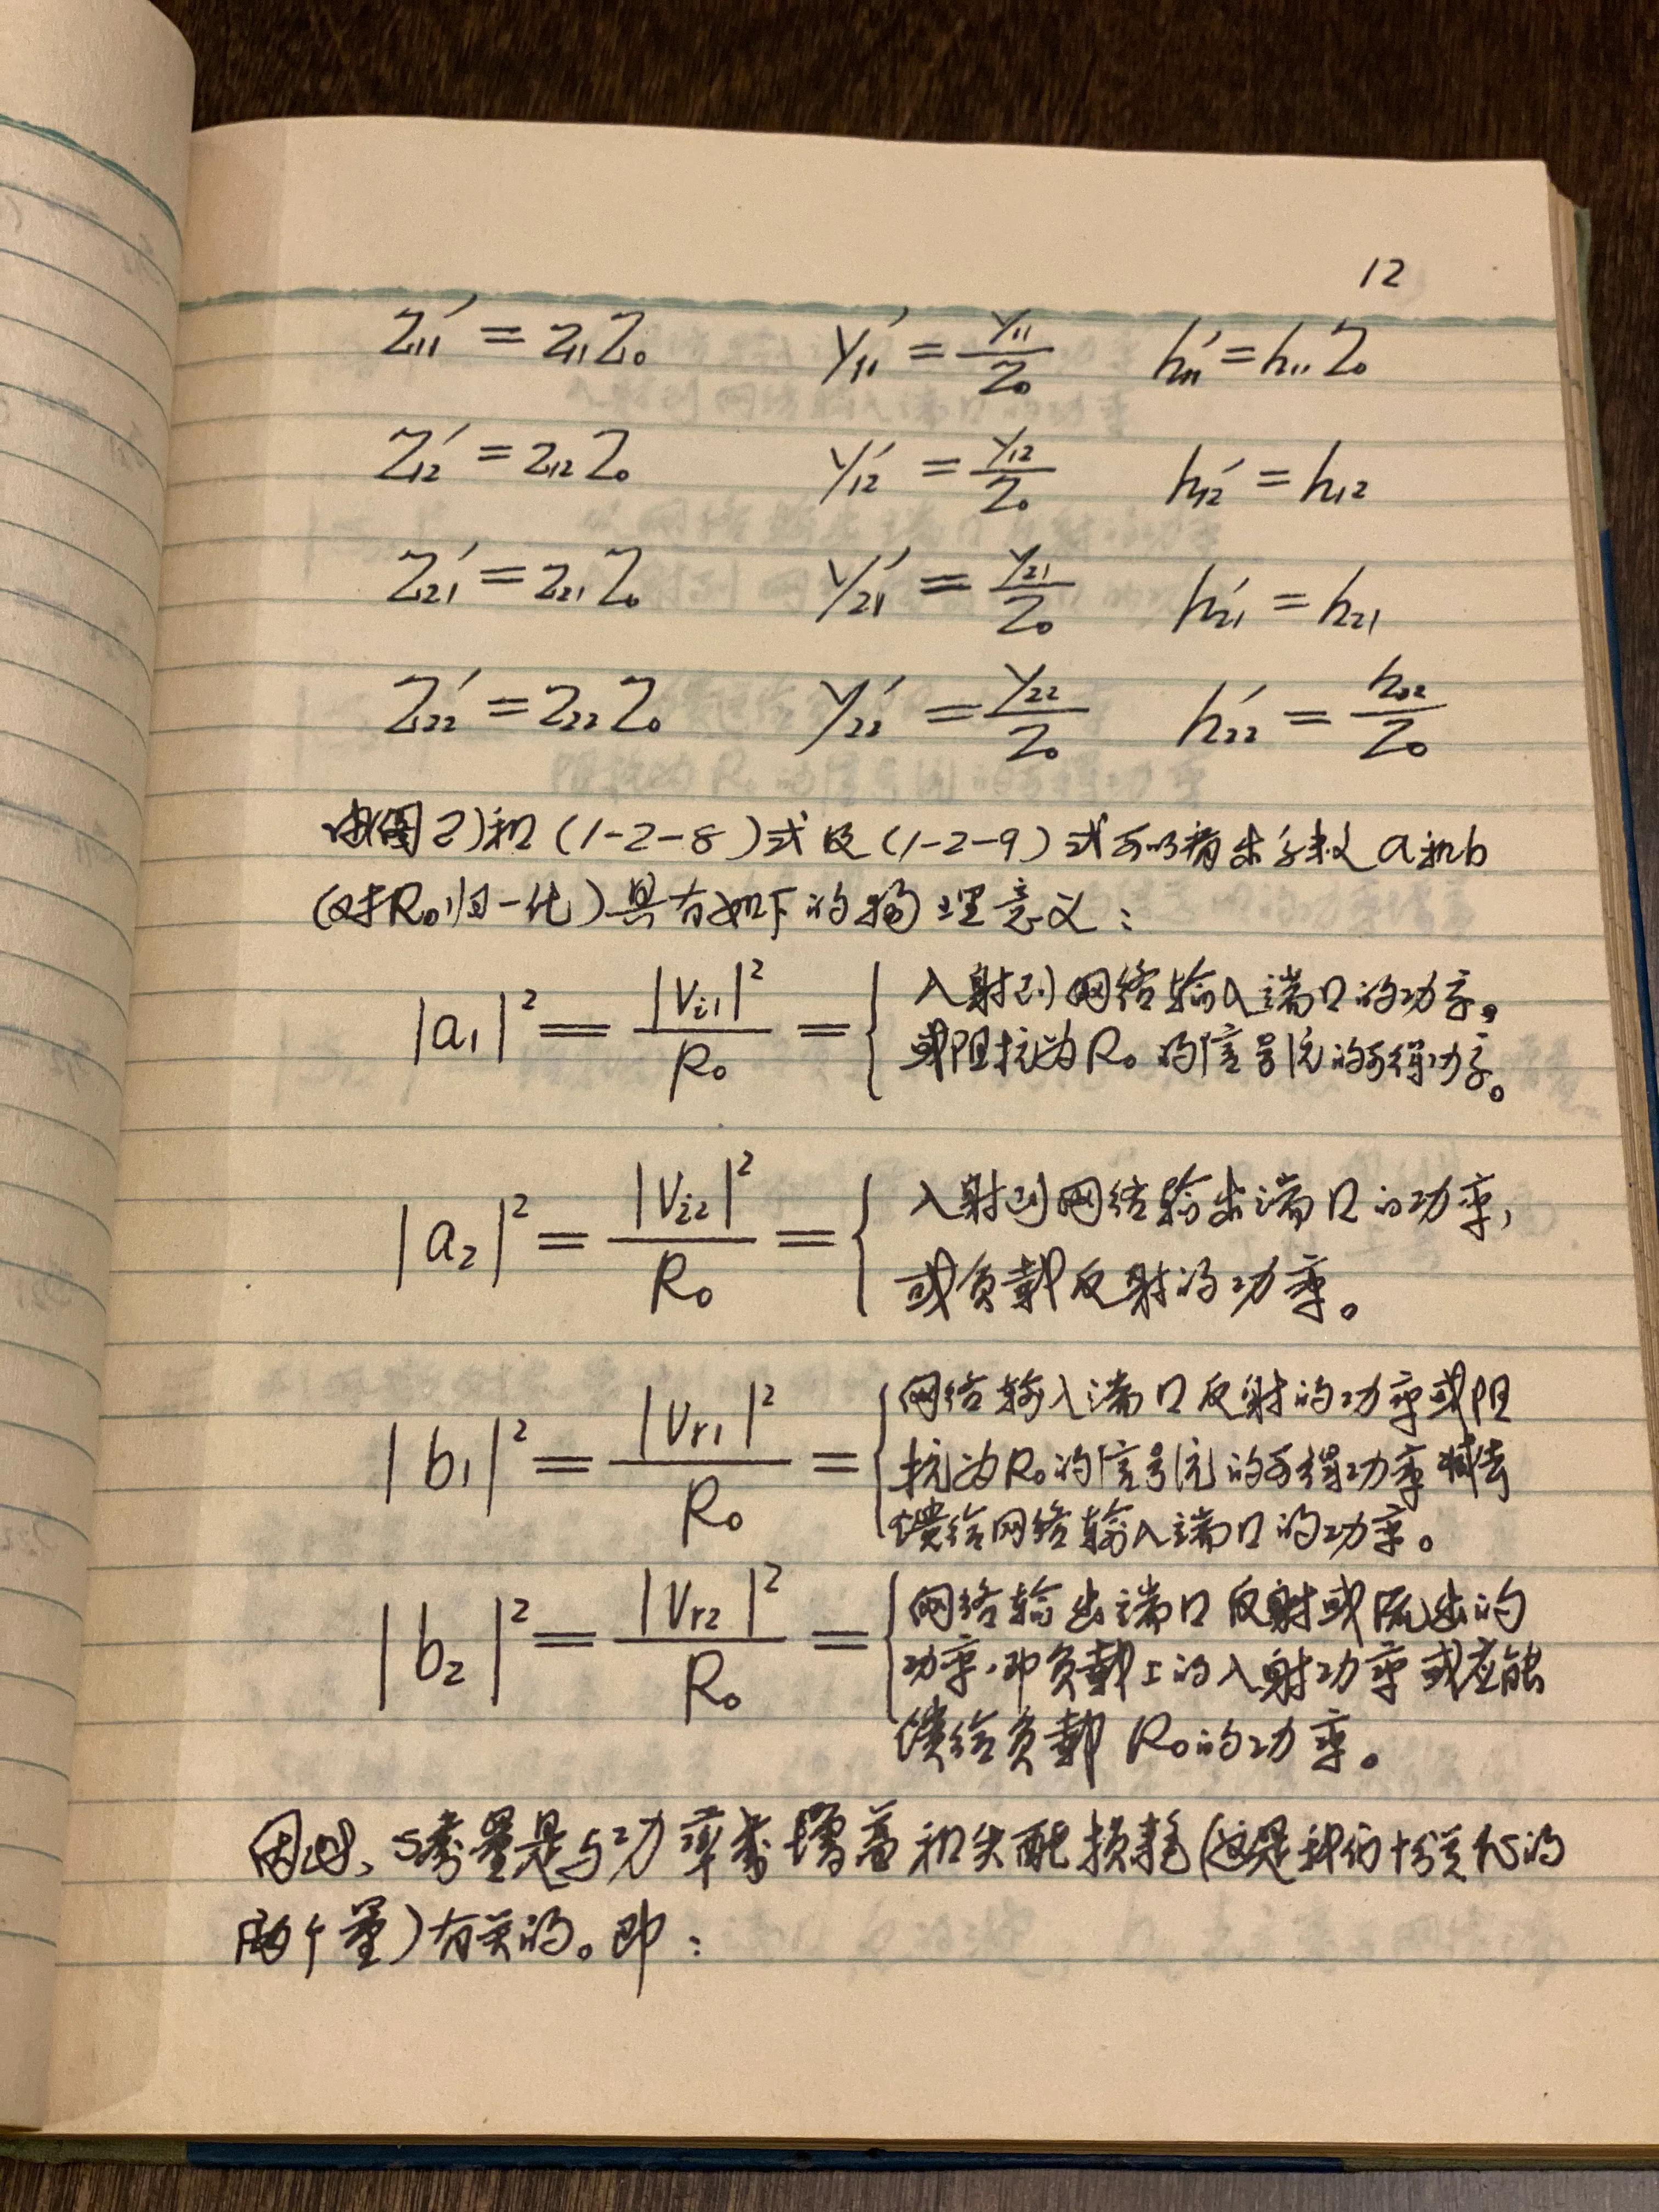 12
Z₁₁' = z₁₁Z₀ y₁₁' = y₁₁/Z₀ h₁₁' = h₁₁Z₀
Z₁₂' = z₁₂Z₀ y₁₂' = y₁₂/Z₀ h₁₂' = h₁₂
Z₂₁' = z₂₁Z₀ y₂₁' = y₂₁/Z₀ h₂₁' = h₂₁
Z₂₂' = z₂₂Z₀ y₂₂' = y₂₂/Z₀ h₂₂' = h₂₂/Z₀
由(图2)和(1-2-8)式及(1-2-9)式可以看出参数a和b
(对R₀归一化)具有如下的物理意义:
|a₁|² = |Vi₁|²/R₀ = { 入射到网络输入端口的功率。
或阻抗为R₀的信号源的可得功率。
|a₂|² = |Vi₂|²/R₀ = { 入射到网络输出端口的功率,
或负载反射的功率。
|b₁|² = |Vr₁|²/R₀ = { 网络输入端口反射的功率或阻
抗为R₀的信号源的可得功率减去
馈给网络输入端口的功率。
|b₂|² = |Vr₂|²/R₀ = { 网络输出端口反射或流出的
功率,即负载上的入射功率或应能
馈给负载R₀的功率。
因此、S参量是与功率增益和失配损耗(这是我们十分关心的
两个量)有关的。即: